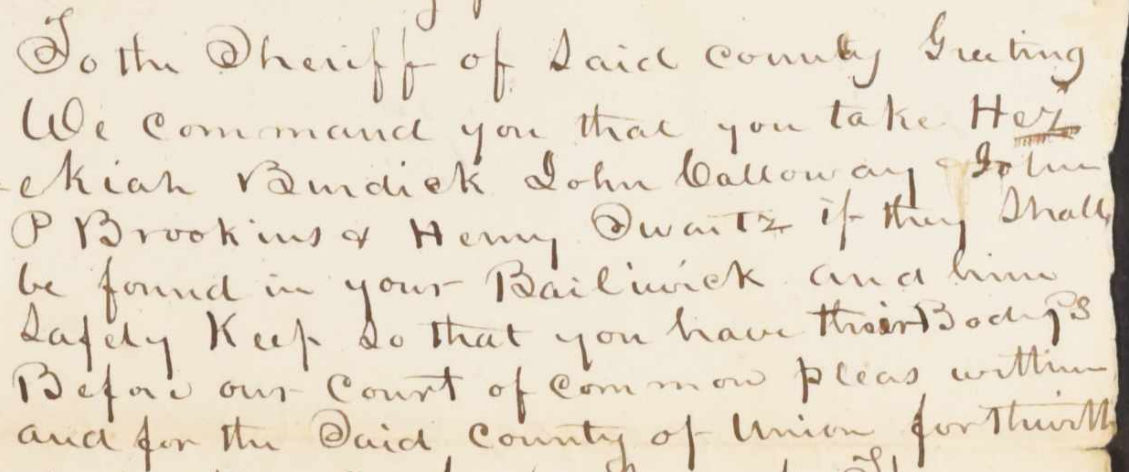 To the Sheriff of Said County Greeting
We command you that you take Hez
ekiah Burdick John Calloway & John
P Brookins & Henry Swartz if they Shall
be found in your Bailiwick and him
Safely Keep So that you have their Bodys
Before our Court of Common pleas within
and for the Said County of Union forthwith